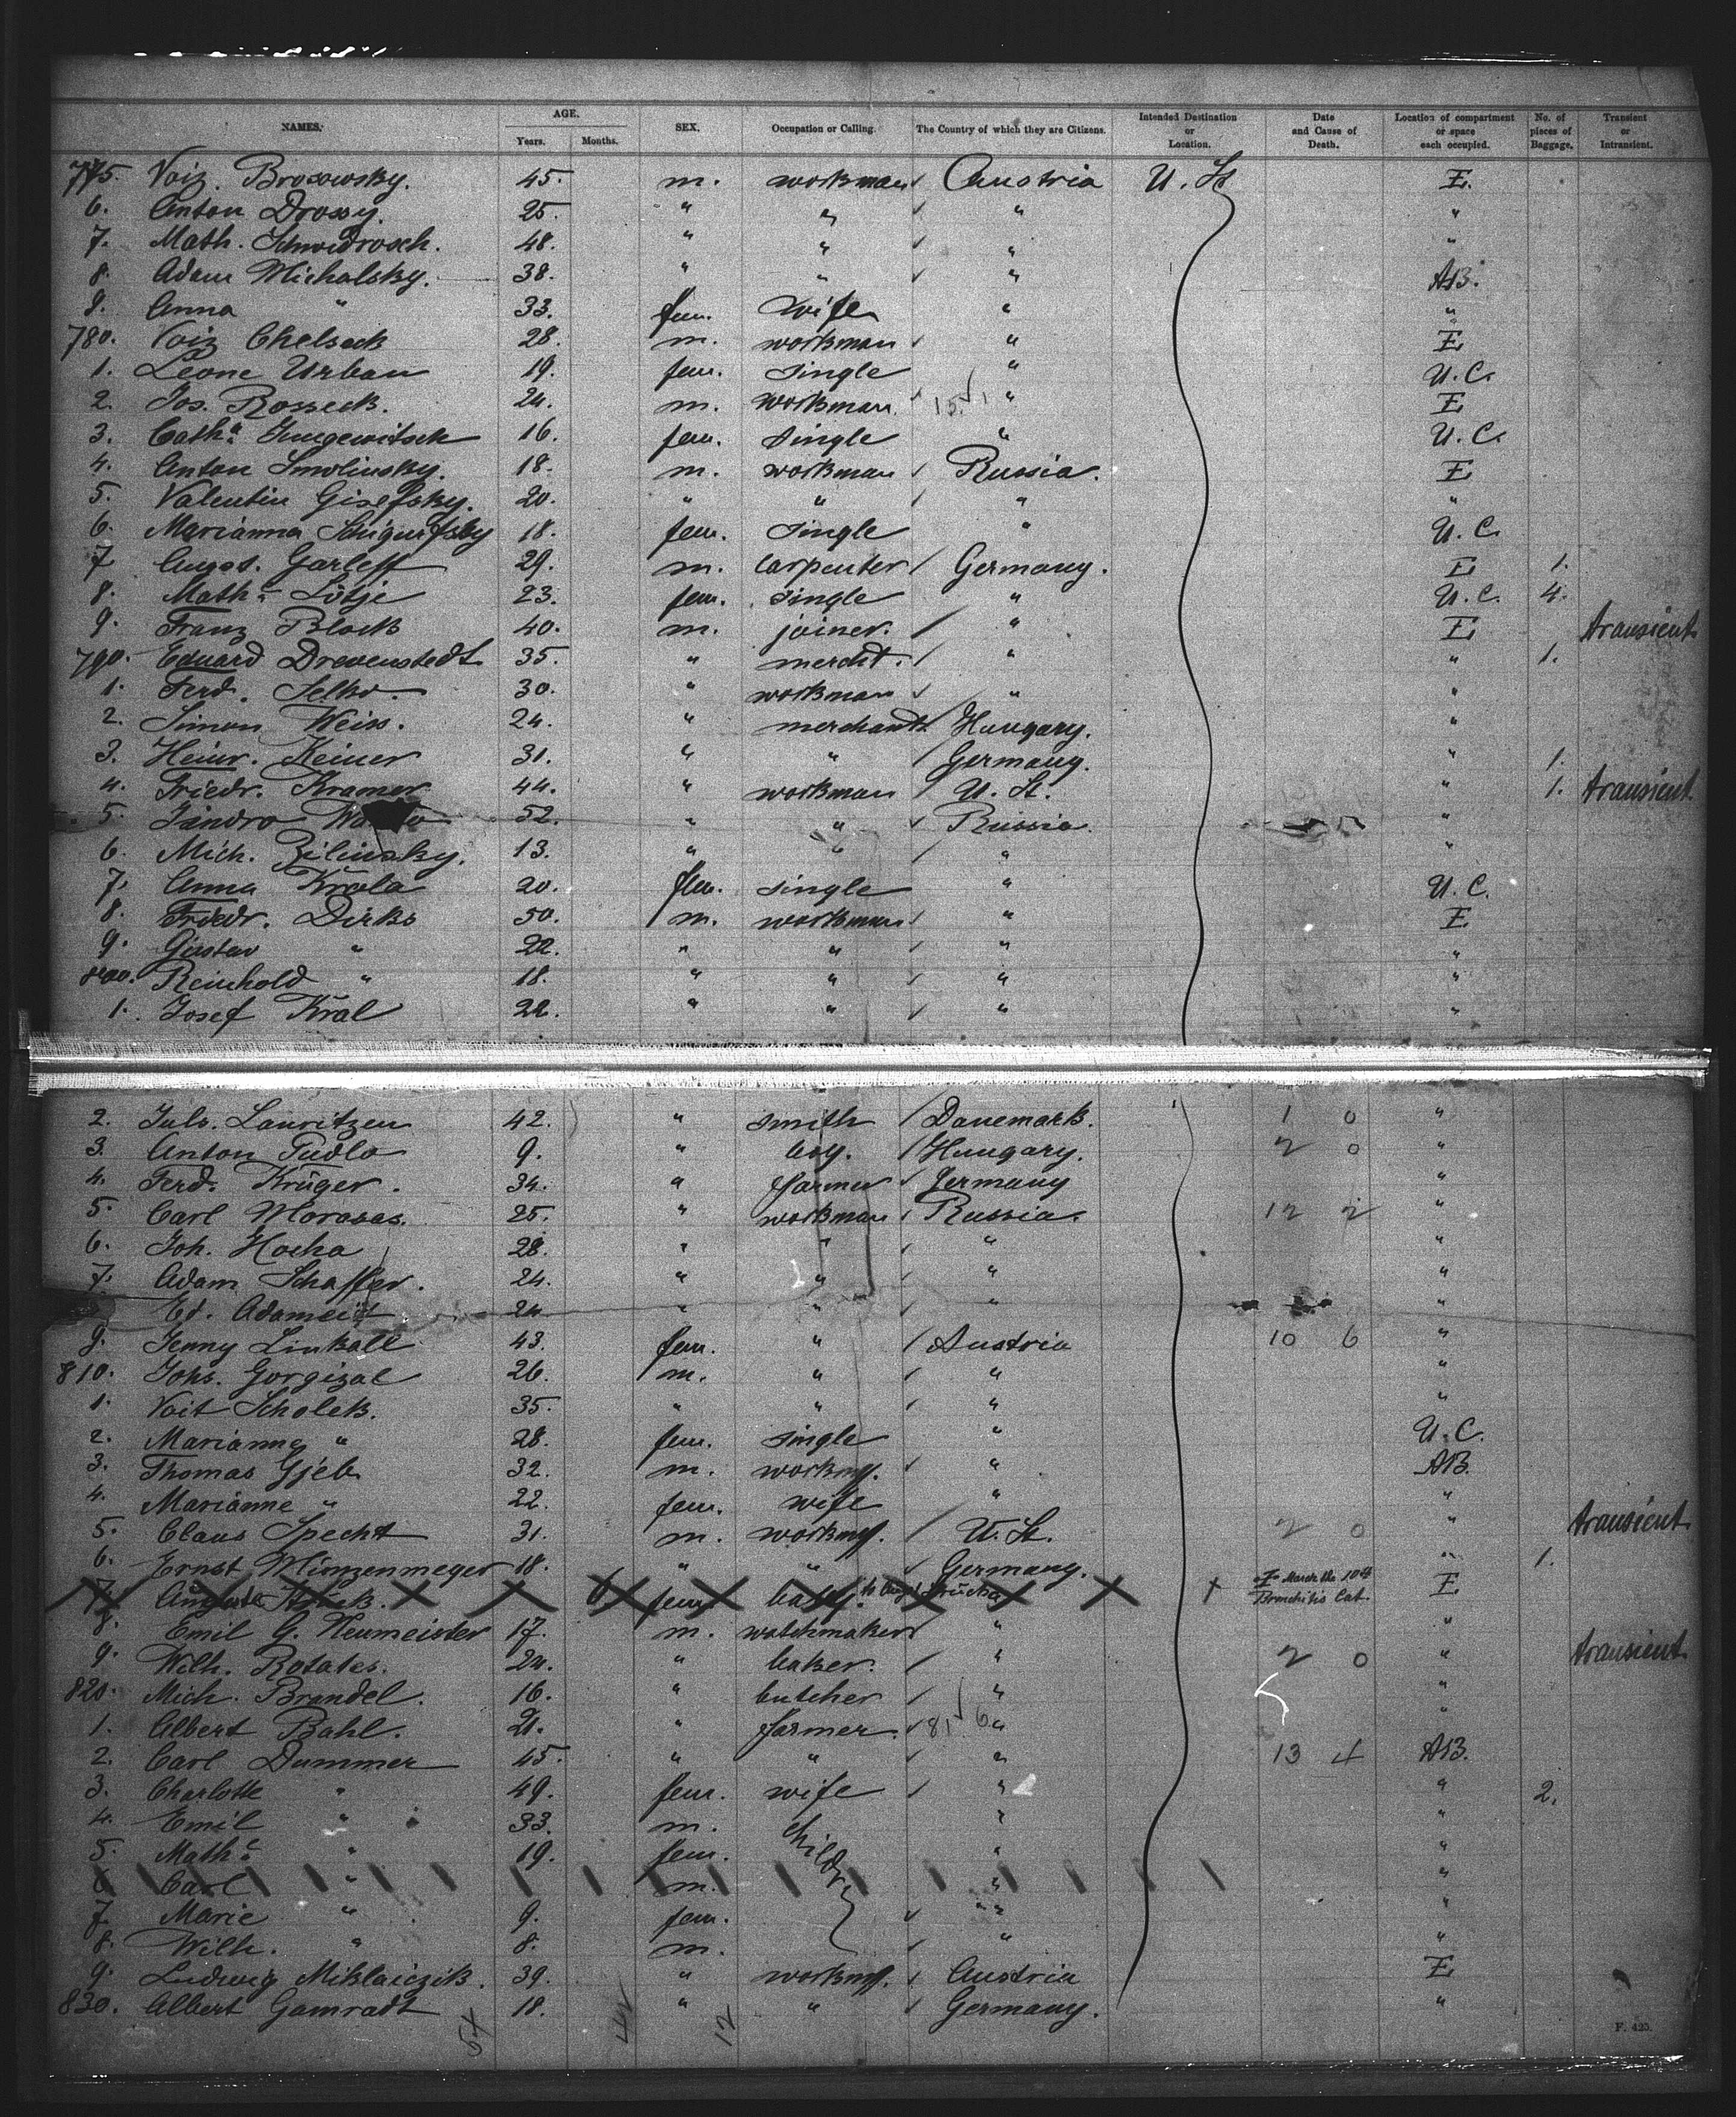 NAMES. AGE. Years. Months. SEX. Occupation or Calling. The Country of which they are Citizens. Intended Destination or Location. Date and Cause of Death. Location of compartment or space each occupied. No. of pieces of Baggage. Transient or Intransient.
775. Voiz. Brosowsky. 45. m. workman Austria U. St. E.
6. Anton Drossy. 25. " " " "
7. Math. Schwedrosch. 48. " " " "
8. Adam Michalsky. 38. " " " AB.
9. Anna " 33. fem. wife " "
780. Voiz Chelseck 28. m. workman " E
1. Leone Urban 19. fem. single " U.C.
2. Jos. Rosseck. 24. m. workman 15 1 " E
3. Cath.a Jungewitsch 16. fem. single " U.C.
4. Anton Smolinsky. 18. m. workman Russia. E
5. Valentin Gisefsky. 20. " " " "
6. Marianna 18. fem. single " U.C.
7 August. Garleff 29. m. carpenter Germany. E 1.
8. Math.e Lötje 23. fem. single " U.C. 4.
9. Franz Block 40. m. joiner. " E transient
790. Eduard Drevenstedt 35. " mercht. " " 1.
1. Ferd. Selko. 30. " workman " "
2. Simon Weiss. 24. " merchant Hungary. "
3. Heinr. Keiner 31. " " Germany. " 1.
4. Friedr. Kramer 44. " workman U. St. " 1. transient.
5. 52. " " Russia. "
6. Mich. Zilinsky. 13. " " " "
7. Anna Krala 20. fem. single " U.C.
8. Friedr. Dirks 50. m. workman " E
9. Gustav " 22. " " " "
800. Reinhold " 18. " " " "
1. Josef Kral 22. " " " "
2. Juls. Lauritzen 42. " smith Danemark. 1 0 "
3. Anton Pudlo 9. " boy. Hungary. 2 0 "
4. Ferd. Krüger. 34. " farmer Germany "
5. Carl Morasas. 25. " workman Russia. 12 2 "
6. Joh. Hocha 28. " " " "
7. Adam Schaffer. 24. " " " "
Ed. 24. " " " "
9. Jenny Linkall 43. fem. " Austria 10 6 "
810. Johs. Gorgizal 26. m. " " "
1. Voit Scholek. 35. " " " "
2. Marianna " 28. fem. single " U.C.
3. Thomas Gjeb 32. m. workm. " AB.
4. Marianne " 22. fem. wife " "
5. Claus Specht 31. m. workm. U. St. 2 0 " transient
6. Ernst Münzenmeyer 18. " " Germany. " 1.
7. Auguste 6 fem. baby. March the 10th Bronchitis Cat. E
8. Emil G. Neumeister 17. m. watchmaker " "
9. Wilh. Rotates. 24. " baker. " 2 0 " transient
820. Mich. Brandel. 16. " butcher " "
1. Albert Bahl. 21. " farmer. 81 6 " "
2. Carl Dummer 45. " " " 13 4 AB.
3. Charlotte " 49. fem. wife " " 2.
4. Emil " 33. m. childr. " "
5. Math.e " 19. fem. " "
6 Carl " m. " "
7. Marie " 9. fem. " "
8. Wilh. " 8. m. " "
9. Ludwig Miklaiczik. 39. " workm. Austria E
830. Albert Gamradt 18. " " Germany. "
54 42 12
F. 425.